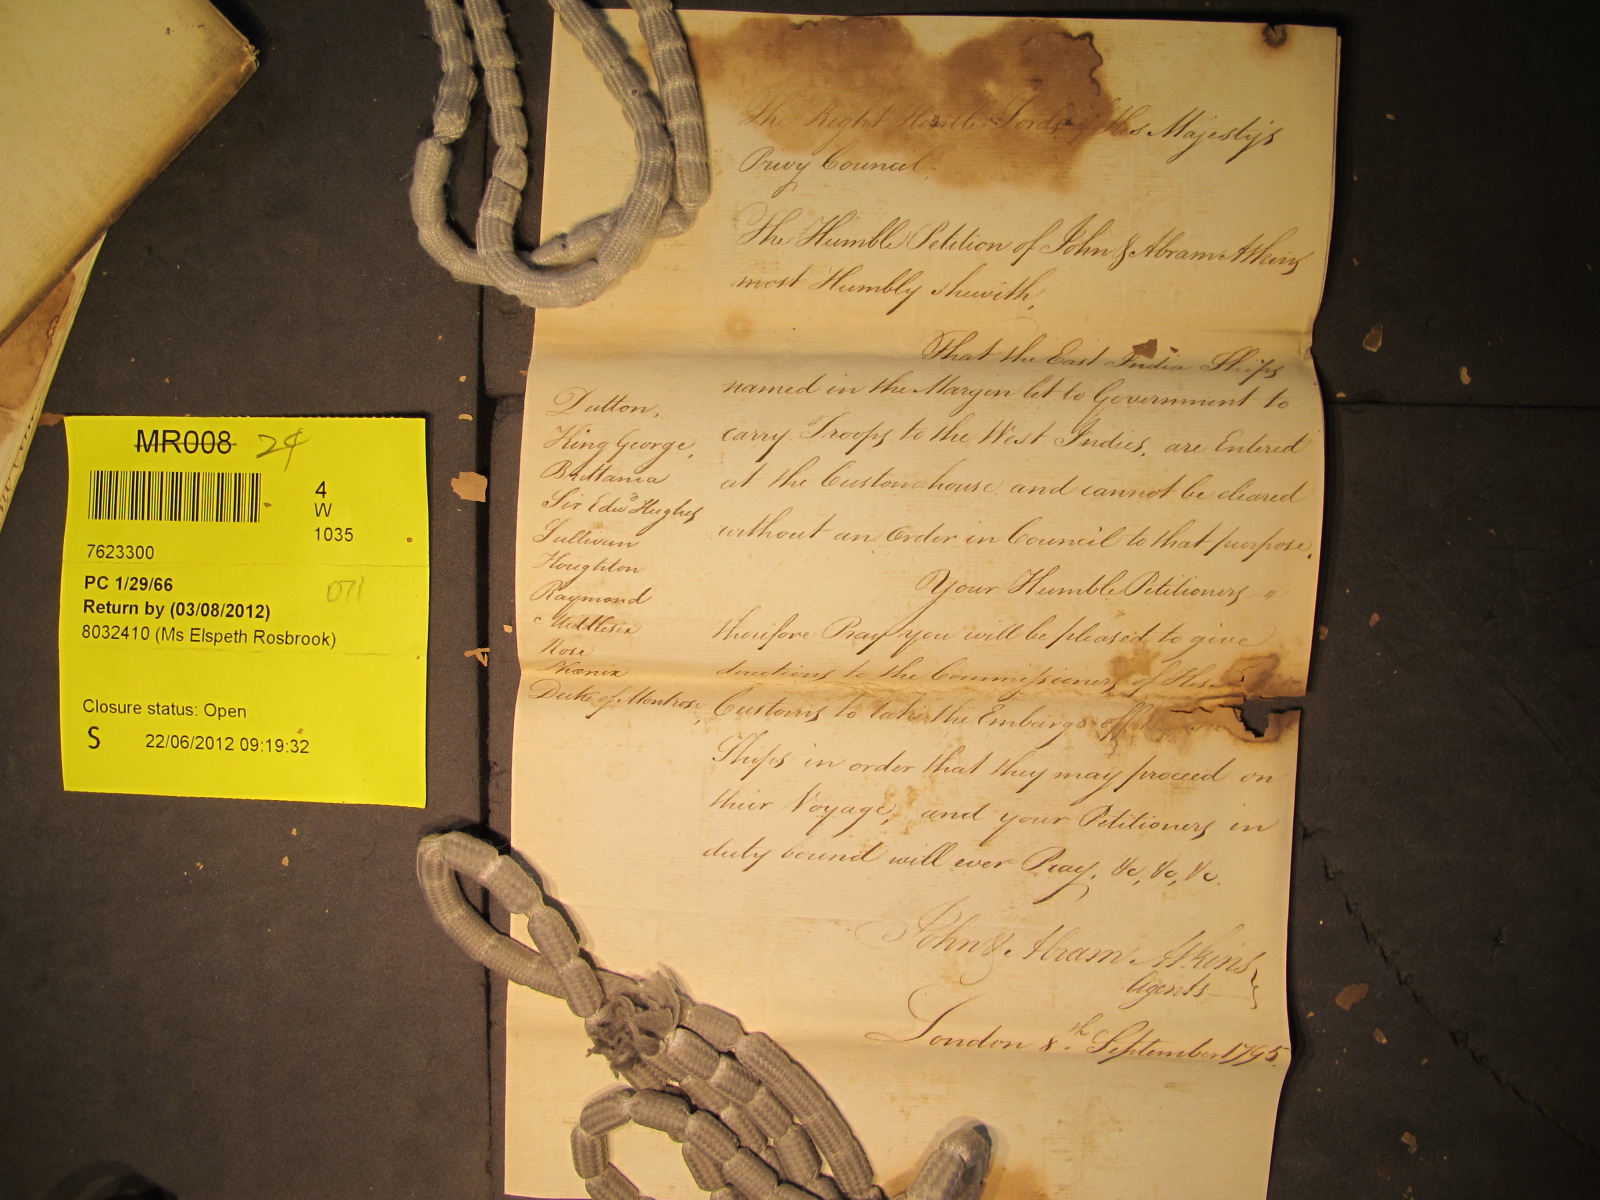 MR008 24
4
W
1035
7623300
PC 1/29/66
071
Return by (03/08/2012)
8032410 (Ms Elspeth Rosbrook)
Closure status: Open
S 22/06/2012 09:19:32
The Right Honble Lords of His Majesty's
Privy Council.
The Humble Petition of John & Abram Atkins
most Humbly sheweth,
That the East India Ships
named in the Margin let to Government to
carry Troops to the West Indies, are Entered
at the Customhouse and cannot be cleared
without an Order in Council to that purpose.
Your Humble Petitioners
therefore Pray you will be pleased to give
directions to the Commissioners of His
Customs to take the Embargo off
Ships in order that they may proceed on
their Voyage, and your Petitioners in
duty bound will ever Pray, &c, &c, &c.
John & Abram Atkins
Agents
London 8th September 1795
Dutton,
King George,
Brittania
Sir Edwd Hughes
Sullivan
Houghton
Raymond
Middlesex
Rose
Duke of Montrose,